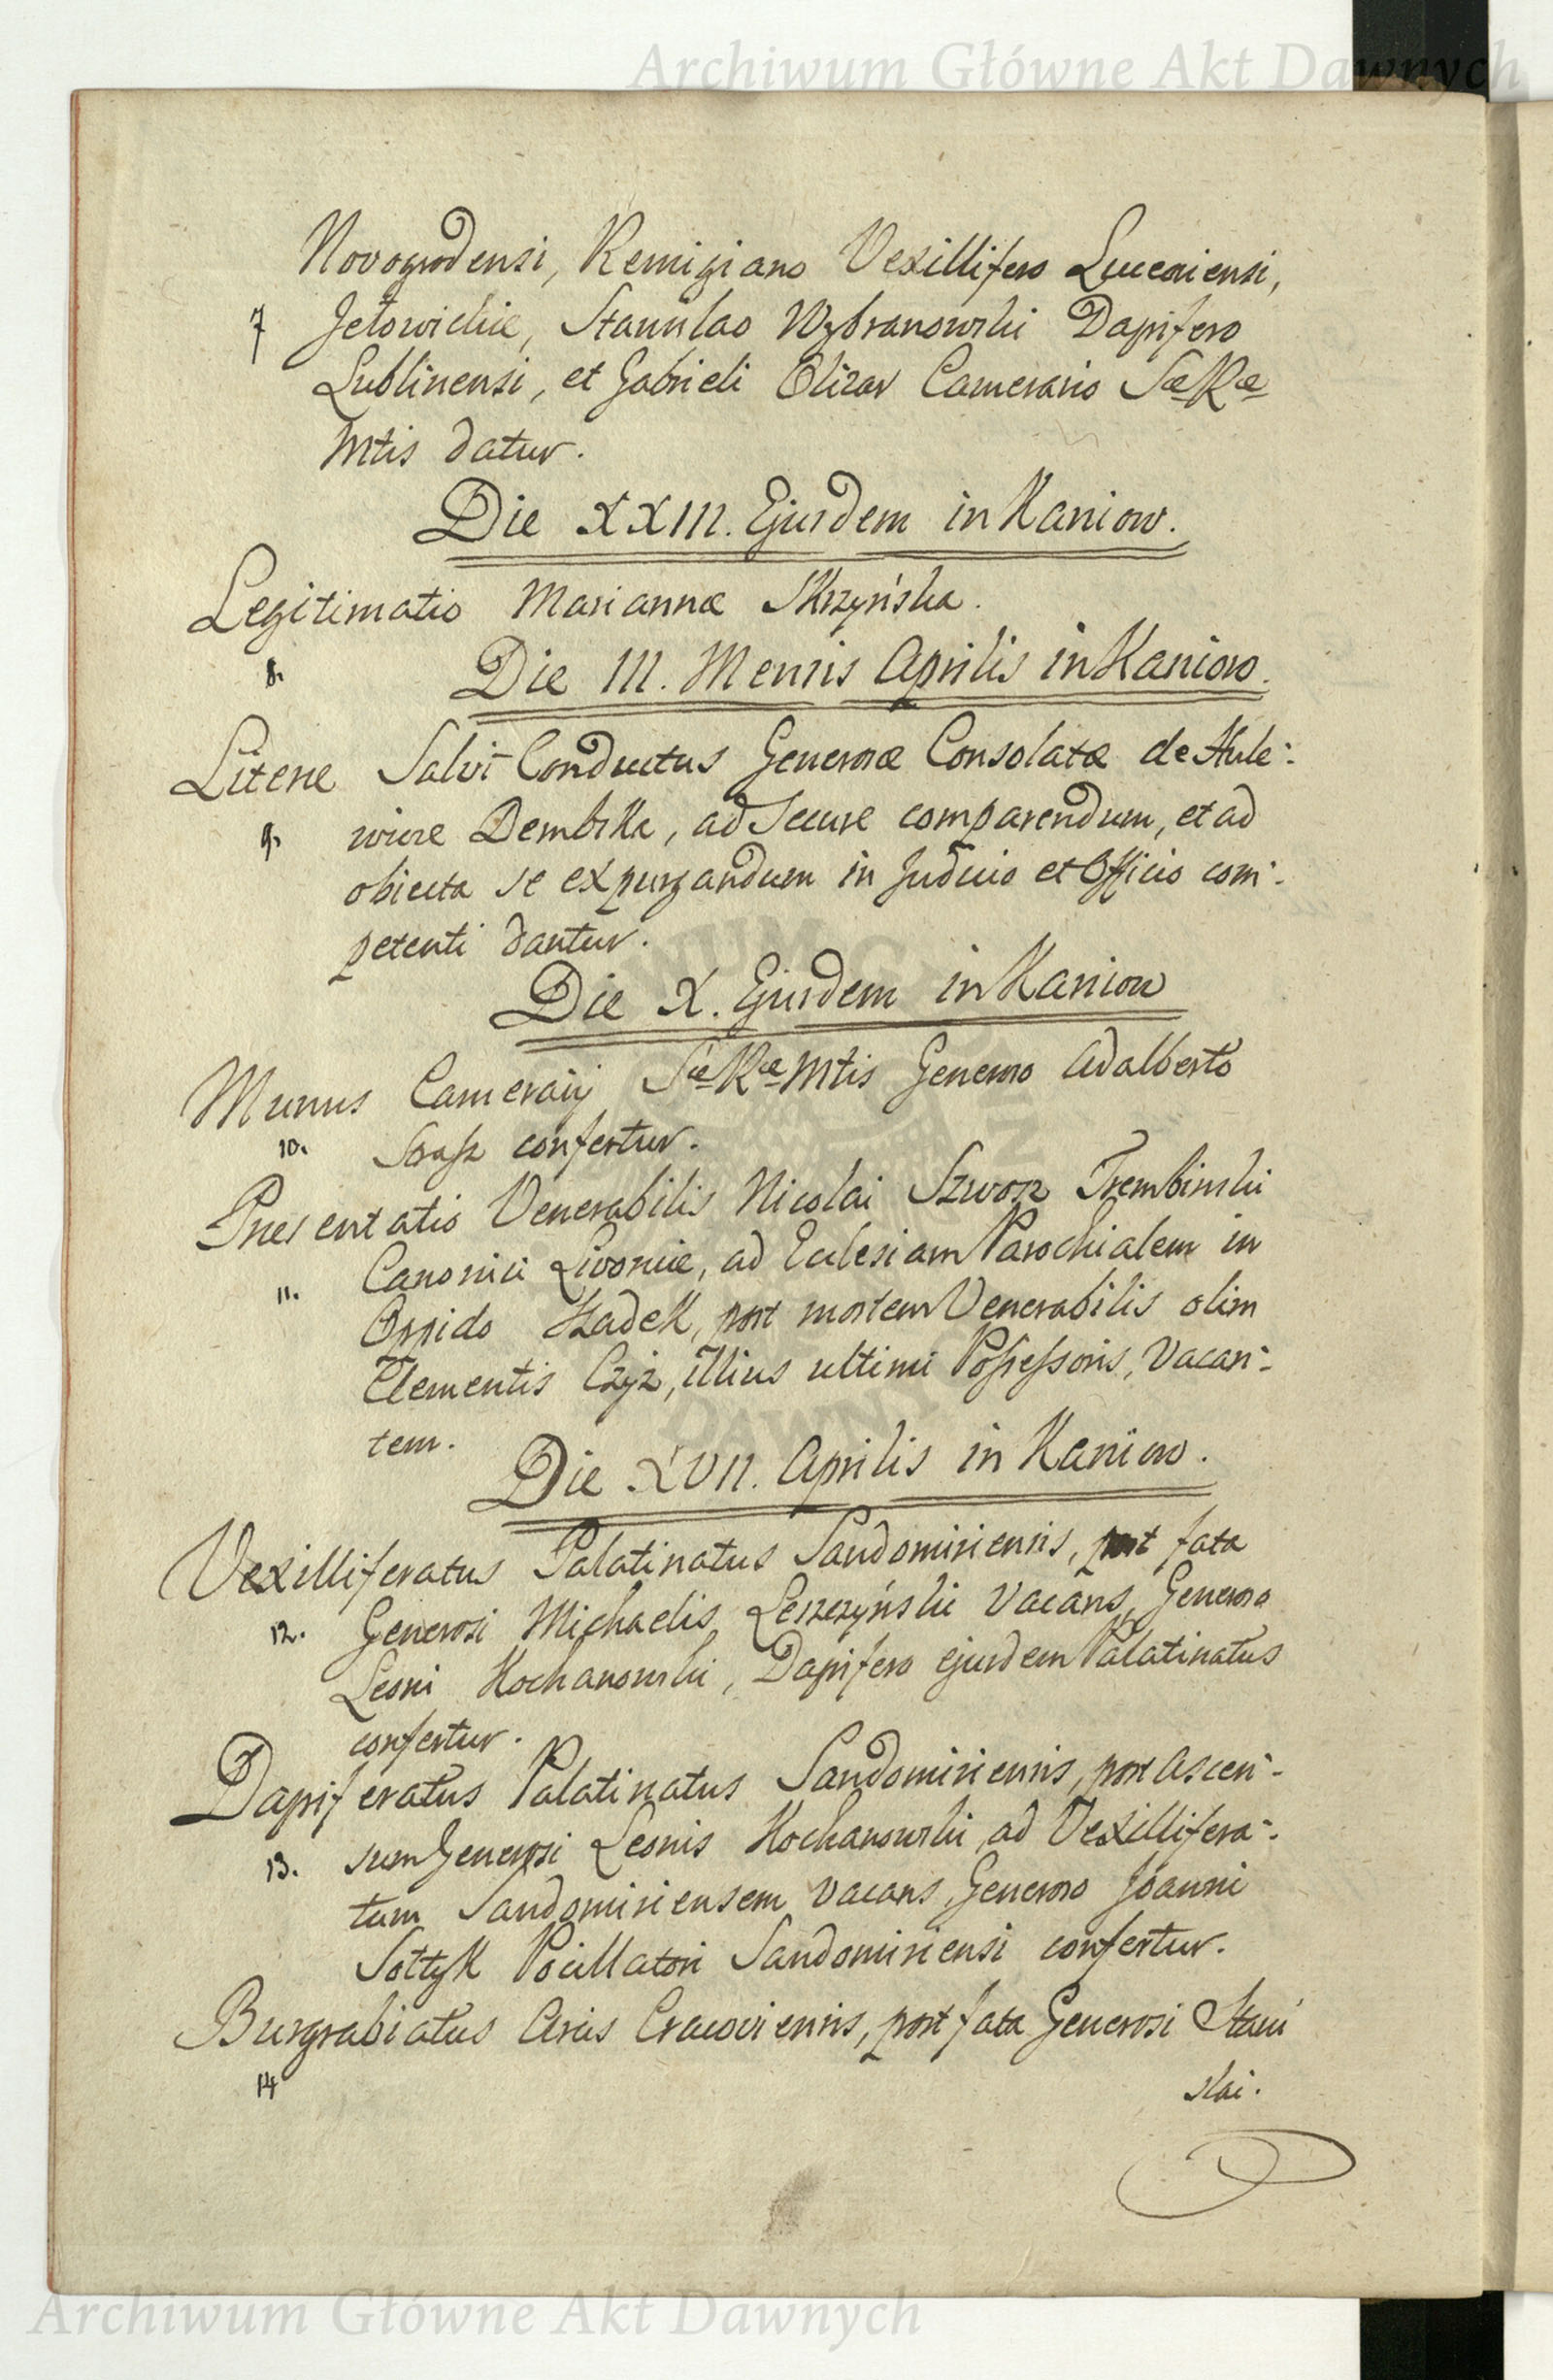 Archiwum Główne Akt Dawnych
Novogrodensi, Remigiano Vexillifero Luceoriensi,
7 Jełowickie, Stanislao Wybranowski Dapifero
Lublinensi, et Gabrieli Olizar Camerario SæRæ
Mtis datur.
Die XXIII. Ejusdem in Kaniow.
Legitimatio Mariannæ Skrzyńska.
8. Die III. Mensis Aprilis in Kaniow.
Literæ Salvi Conductus Generosæ Consolatæ de Hule-
9. Dembska, ad secure comparendum, et ad
obiecta se expurgandum in Judicio et Officio com-
petenti dantur.
Die X. Ejusdem in Kaniow
Munus Camerarij SæRæMtis Generoso Adalberto
10. confertur.
Præsentatio Venerabilis Nicolai Szwoz Trembinski
11. Canonici Livoniæ, ad Ecclesiam Parochialem in
Oppido Szadek, post mortem Venerabilis olim
Clementis Czyz, illius ultimi Possessoris, vacan-
tem.
Die XVII. Aprilis in Kaniow.
Vexilliferatus Palatinatus Sandomiriensis, post fata
12. Generosi Michaelis Leszczyński vacans, Generoso
Leoni Kochanowski, Dapifero ejusdem Palatinatus
confertur.
Dapiferatus Palatinatus Sandomiriensis, post ascen-
13. sum Generosi Leonis Kochanowski, ad Vexillifera-
tum Sandomiriensem vacans, Generoso Joanni
Sołtyk Pocillatori Sandomiriensi confertur.
Burgrabiatus Arcis Cracoviensis, post fata Generosi Stani
14 slai.
Archiwum Główne Akt Dawnych